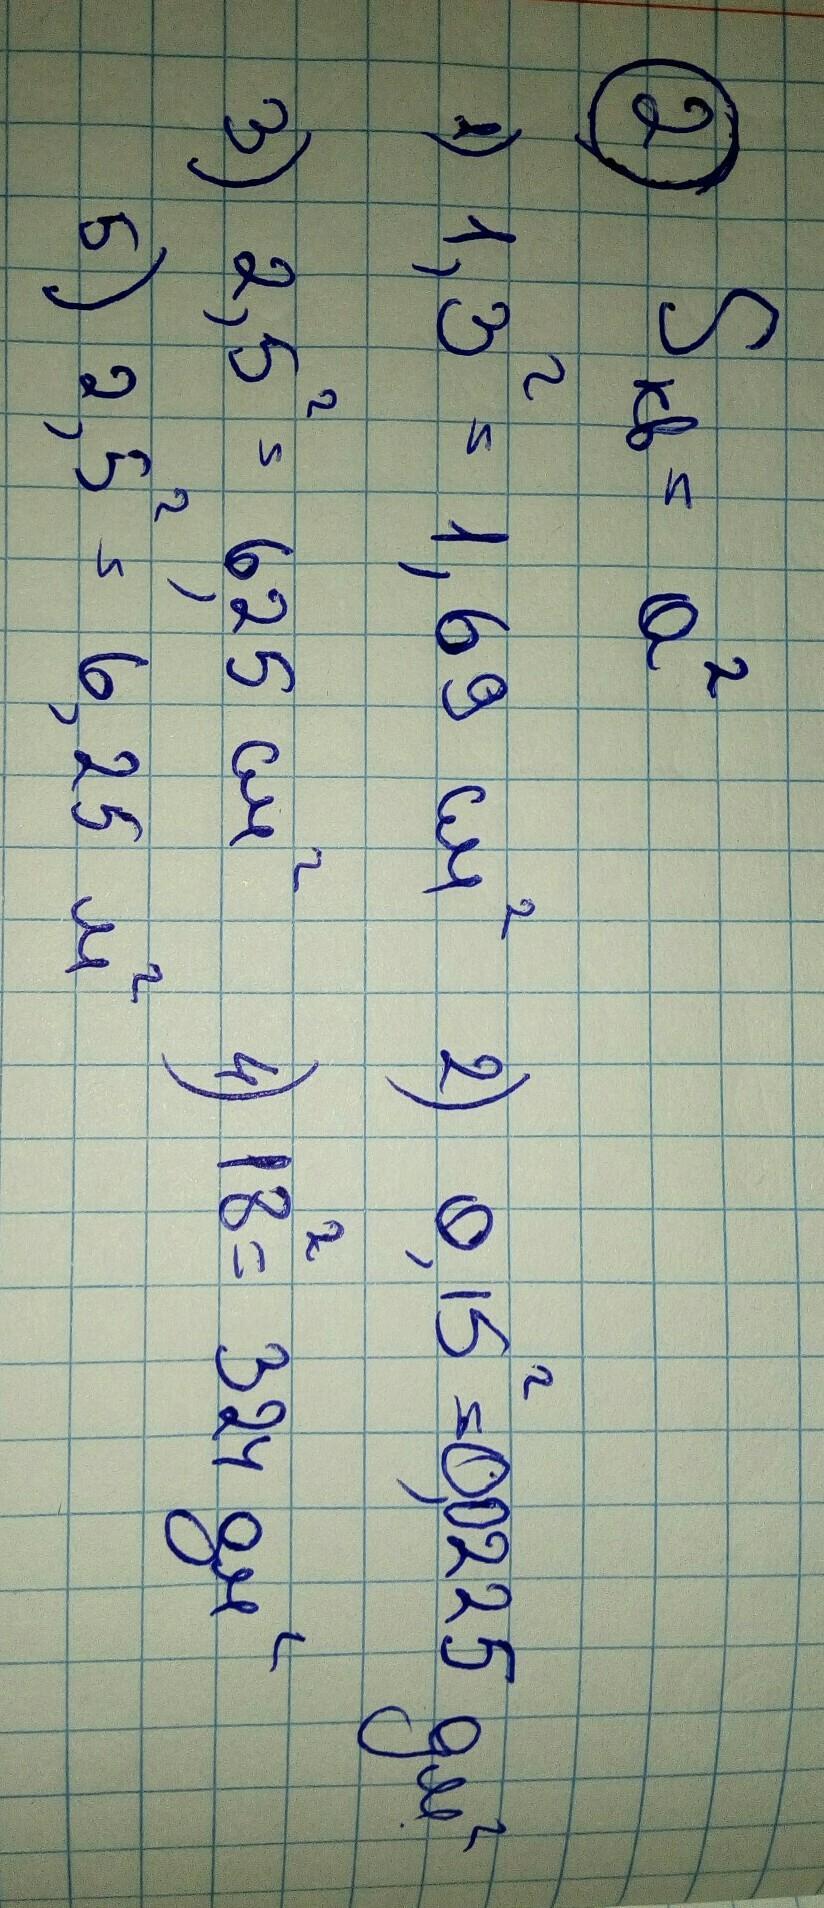 2 Sкв = a²
1) 1,3² = 1,69 см² 2) 0,15² = 0,0225 дм²
3) 2,5² = 6,25 см² 4) 18² = 324 дм²
5) 2,5² = 6,25 м²